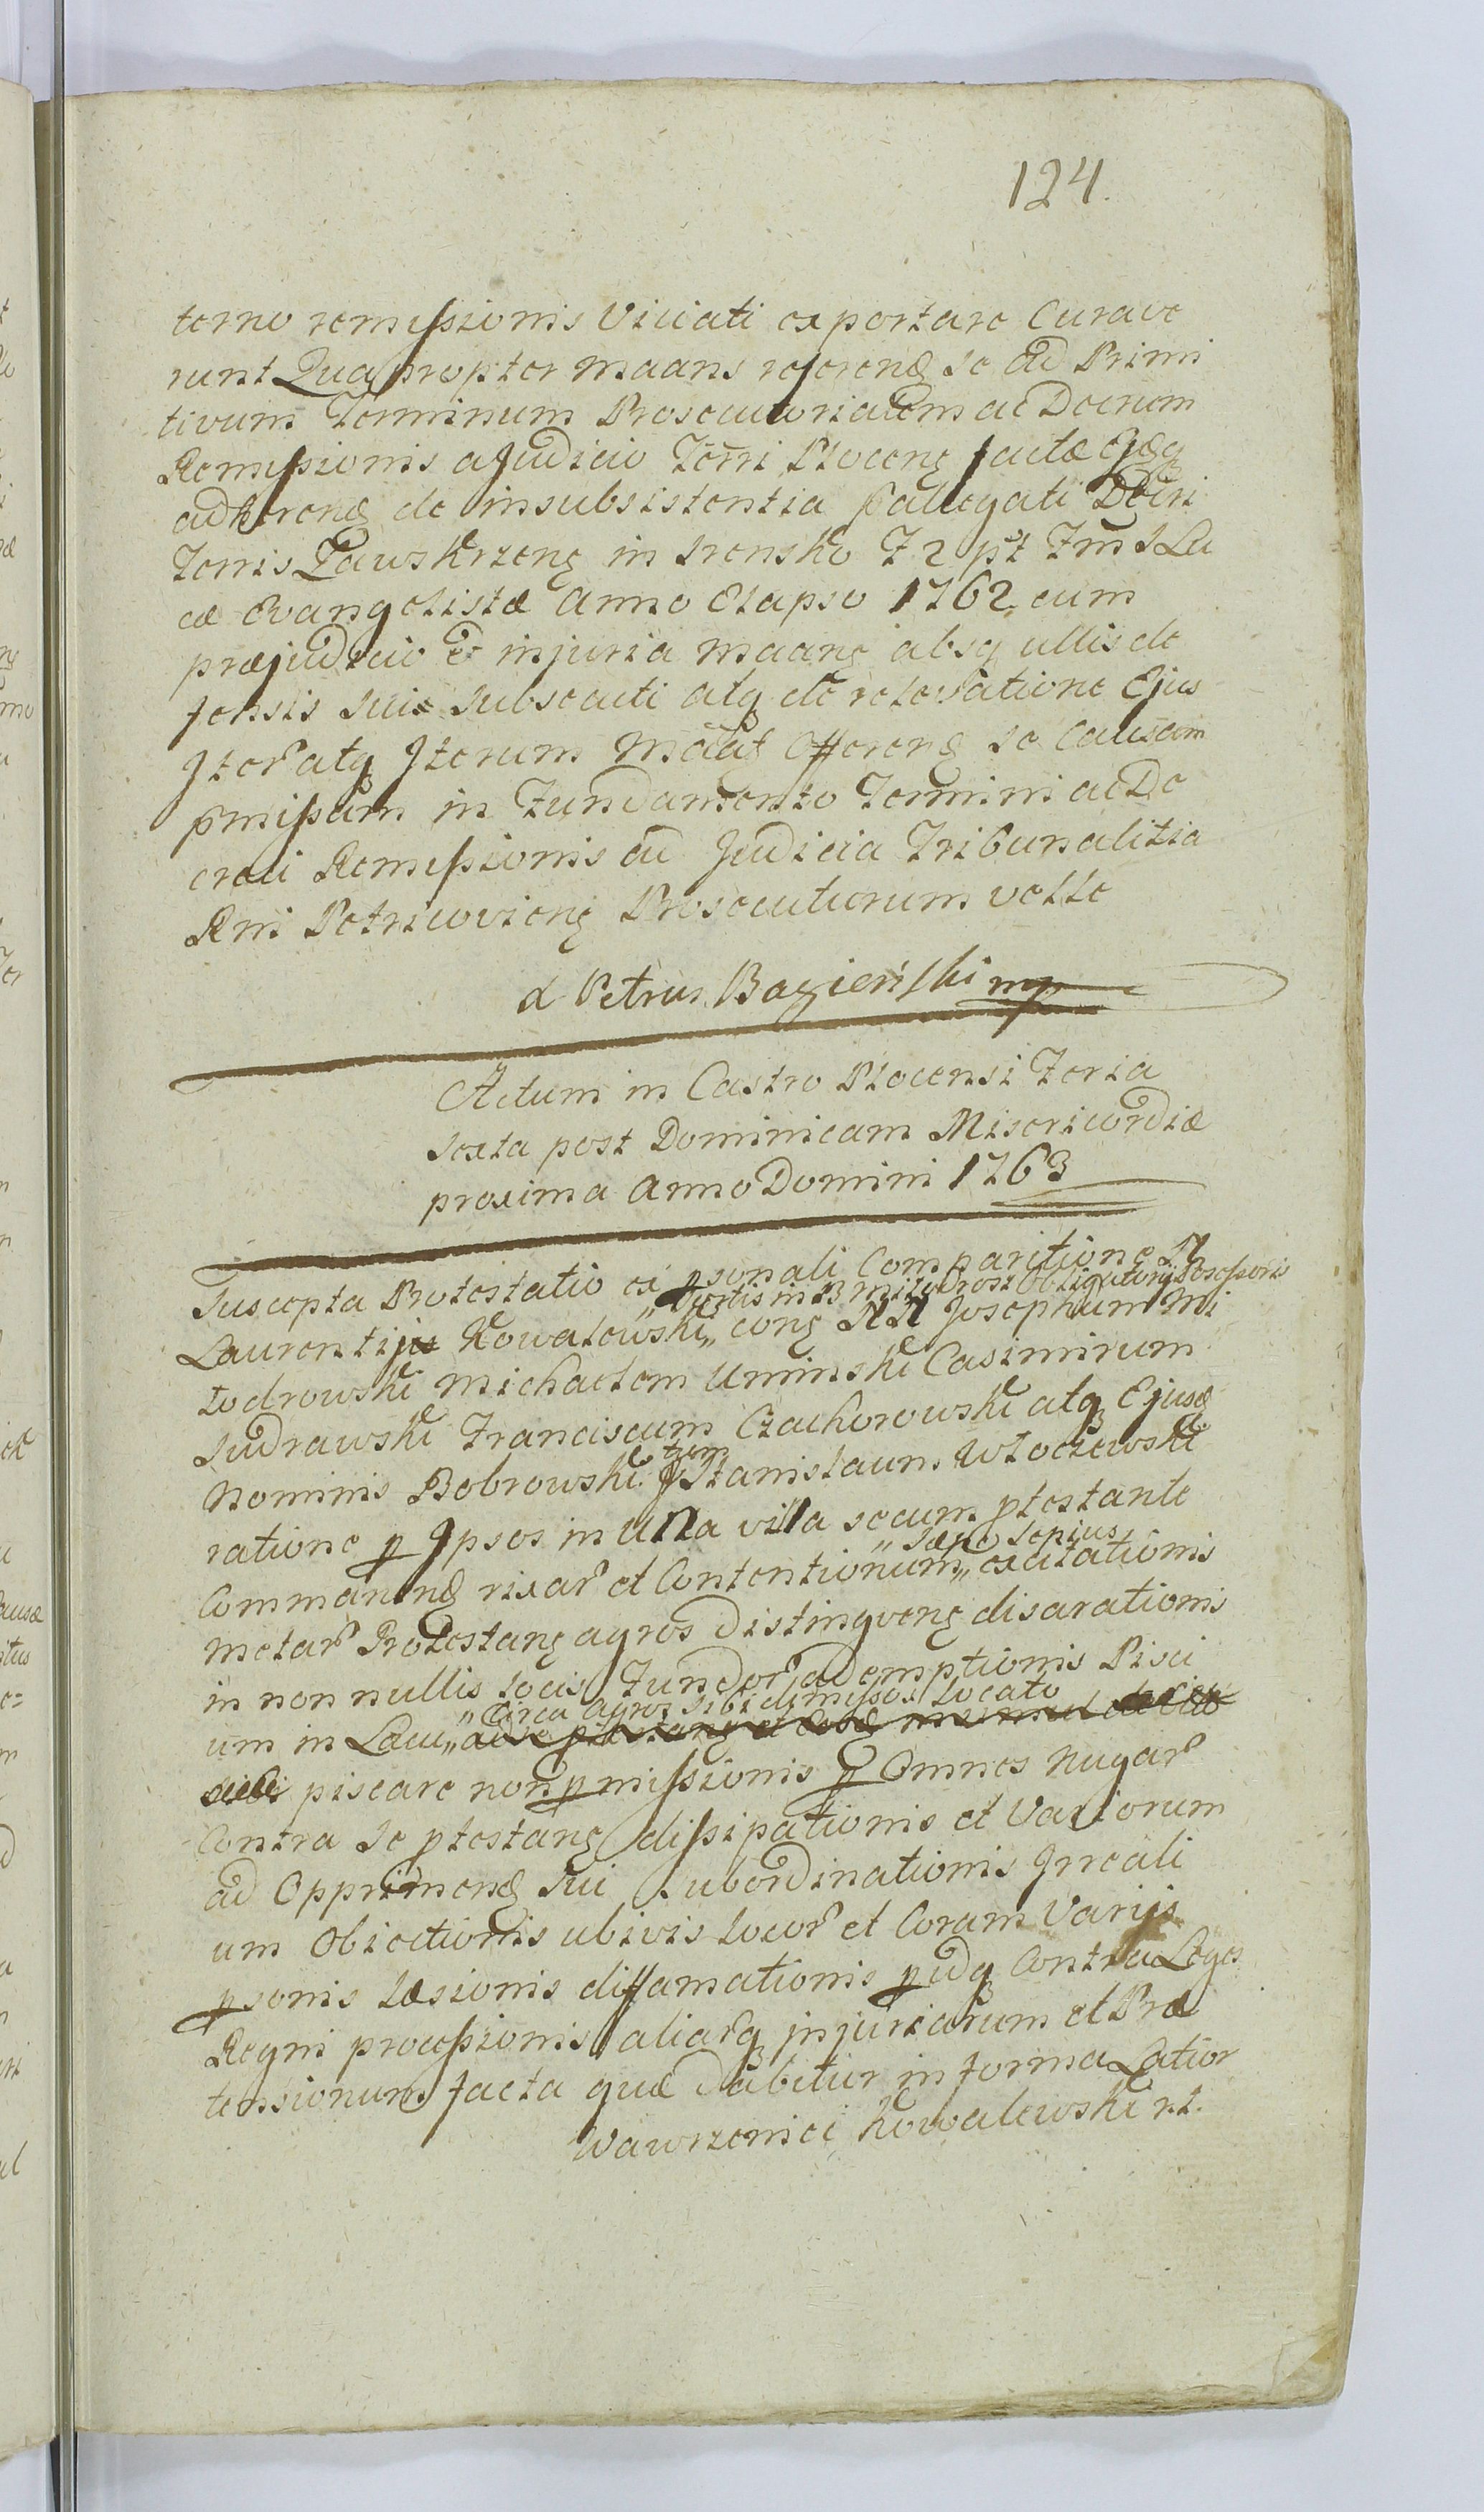 124.
terno remissionis Viciati exportare Curave
runt Quapropter Maans referens se ad Primi
tivum Terminum Prosecutorialem ac Decrum
Remissionis a Judicio Terri Plocens factæ Ejqs
adhærens de insubsistentia pallegati Decri
Terris Zawskrzens in Srensko F 2 pt Fm S Lu
cæ Evangelistæ Anno Elapso 1762 cum
præjudicio et injuria Maans absq ullis de
fensis suis subsecuti atq de relaxatione Ejus
Iter atq Iterum Maat Offerens se Causam
pmissam in Fundamento Termini ac De
creti Remissionis ad Judicia Tribunalitia
Rni Petricoviens Prosecuturum velle
d Petrus Bagieński mp
Actum in Castro Plocensi Feria
sexta post Dominicam Misericordiæ
proxima Anno Domini 1763
Suscepta Protestatio ex psonali Comparitione N
„Sortis in B Miłodroż Obligatorij Possessoris
Laurentij Kowalewski „ cons NN Josephum Mi
łodrowski Michaelem Uminski Casimirum
Sudrawski Franciscum Czachorowski atq Ejusd
Nominis Bobrowski tum Stanislaum Włoczewski
ratione p Ipsos in una villa secum ptestante
„sæpe sepius
Commanens rixar et Contentionum „ excitationis
metar Protestans agros distingvens disarationis
in non nullis locis Fundor ademptionis Pisci
„Circa agros sibi dimissos locato
um in Lacu „ ad se ptestans et
sibi piscare non pmissionis p Omnes nugar
Contra se ptestans dissipationis et Variorum
ad Opprimend sui subordinationis Irreali
um Obiectionis ubivis locor et Coram Varijs
psonis læsionis diffamationis pidq Contra Leges
Regni processionis aliarq injuriarum et Præ
tensionum facta quæ dabitur in forma Latior
Wawrzeniec Kowalewski